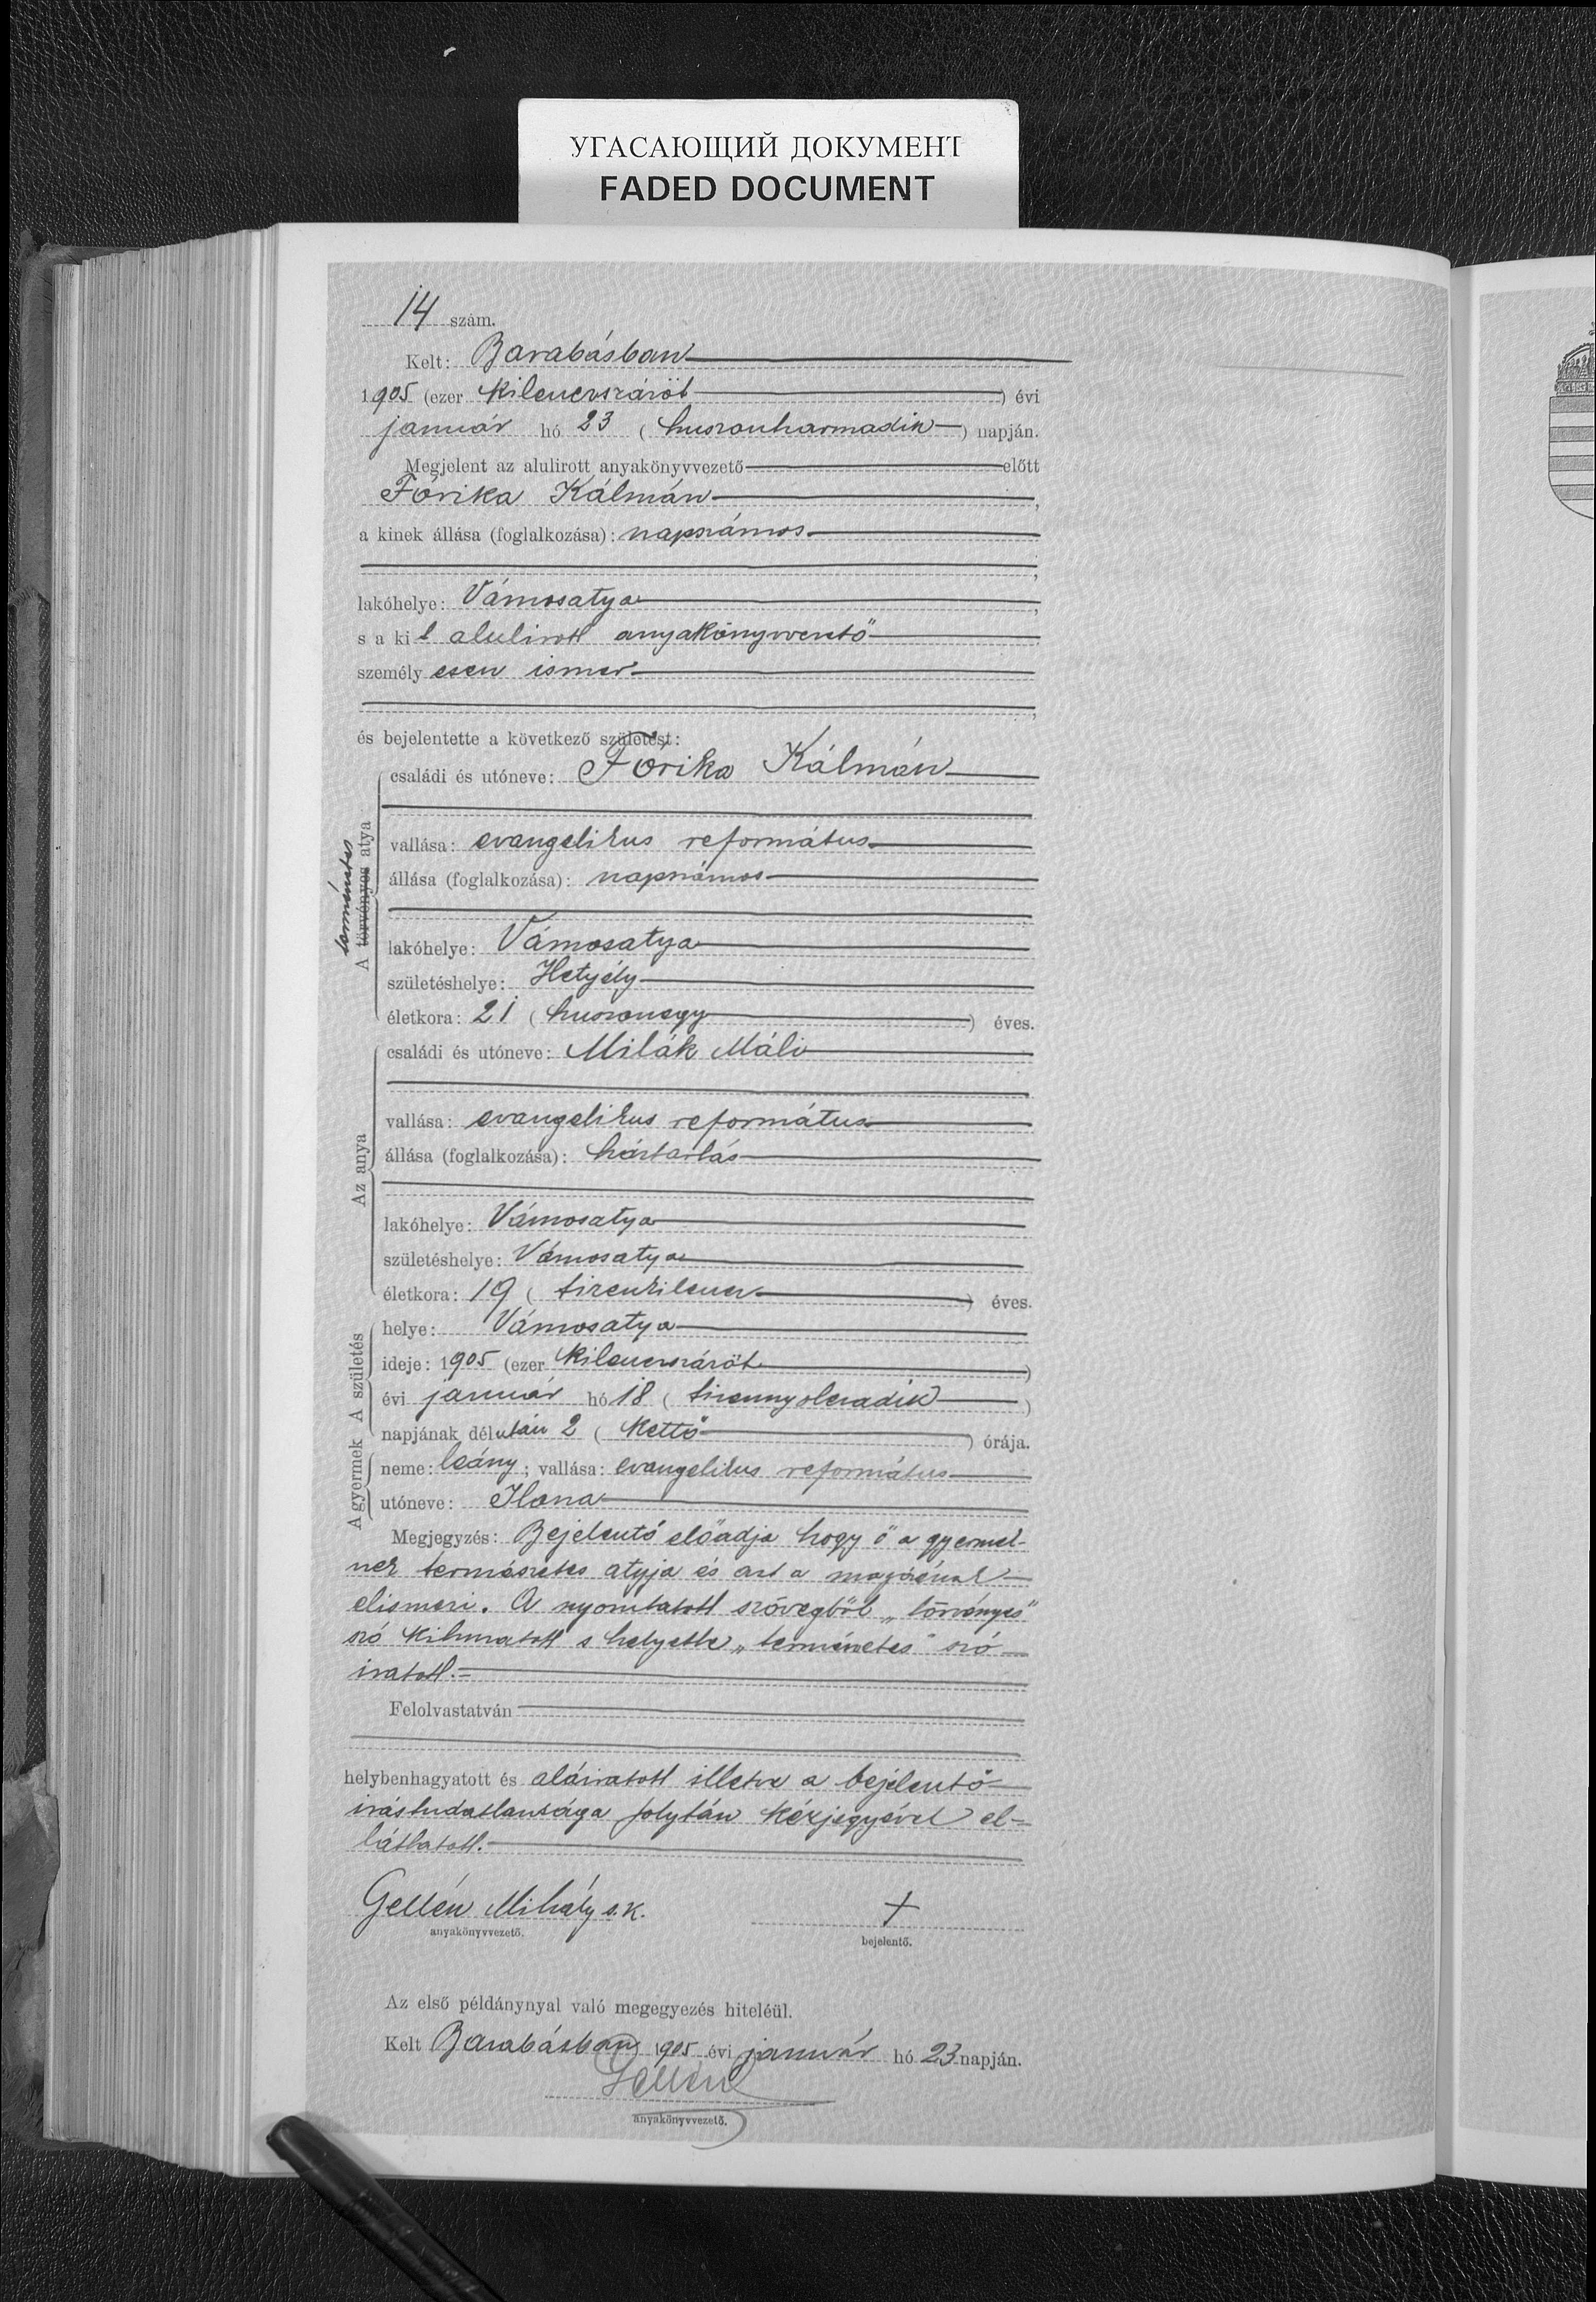 УГАСАЮЩИЙ ДОКУМЕНТ
FADED DOCUMENT
14 szám.
Kelt: Barabásban
1905 (ezer kilencszázöt) évi
január hó 23 (huszonharmadik) napján.
Megjelent az alulirott anyakönyvvezető előtt
Fórika Kálmán,
a kinek állása (foglalkozása): napszámos
;
lakóhelye: Vámosatya,
s a kit alulirott anyakönyvvezető
személyesen ismer
,
és bejelentette a következő születést:
A törvényes atya
természetes
családi és utóneve: Fórika Kálmán
vallása: evangelikus református
állása (foglalkozása): napszámos
lakóhelye: Vámosatya
születéshelye: Hetyély
életkora: 21 (huszonegy) éves.
Az anya
családi és utóneve: Milák Máli
vallása: evangelikus református
állása (foglalkozása): háztartás
lakóhelye: Vámosatya
születéshelye: Vámosatya
életkora: 19 (tizenkilenc) éves.
A születés
helye: Vámosatya
ideje: 1905 (ezer kilencszázöt)
évi január hó 18 (tizennyolcadik)
napjának délután 2 (kettő) órája.
A gyermek
neme: leány; vallása: evangelikus református
utóneve: Ilona
Megjegyzés: Bejelentő előadja hogy ő a gyermek-
nek természetes atyja és azt a magáénak
elismeri. A nyomtatott szövegből „törvényes"
szó kihuzatott s helyette „természetes" szó
iratott.=
Felolvastatván
helybenhagyatott és aláiratott illetve a bejelentő
irástudatlansága folytán kézjegyével el=
láttatott.
Gellén Mihály s.k.
anyakönyvvezető.
+
bejelentő.
Az első példánynyal való megegyezés hiteléül.
Kelt Barabásban 1905 évi január hó 23 napján.
Gellén
anyakönyvvezető.